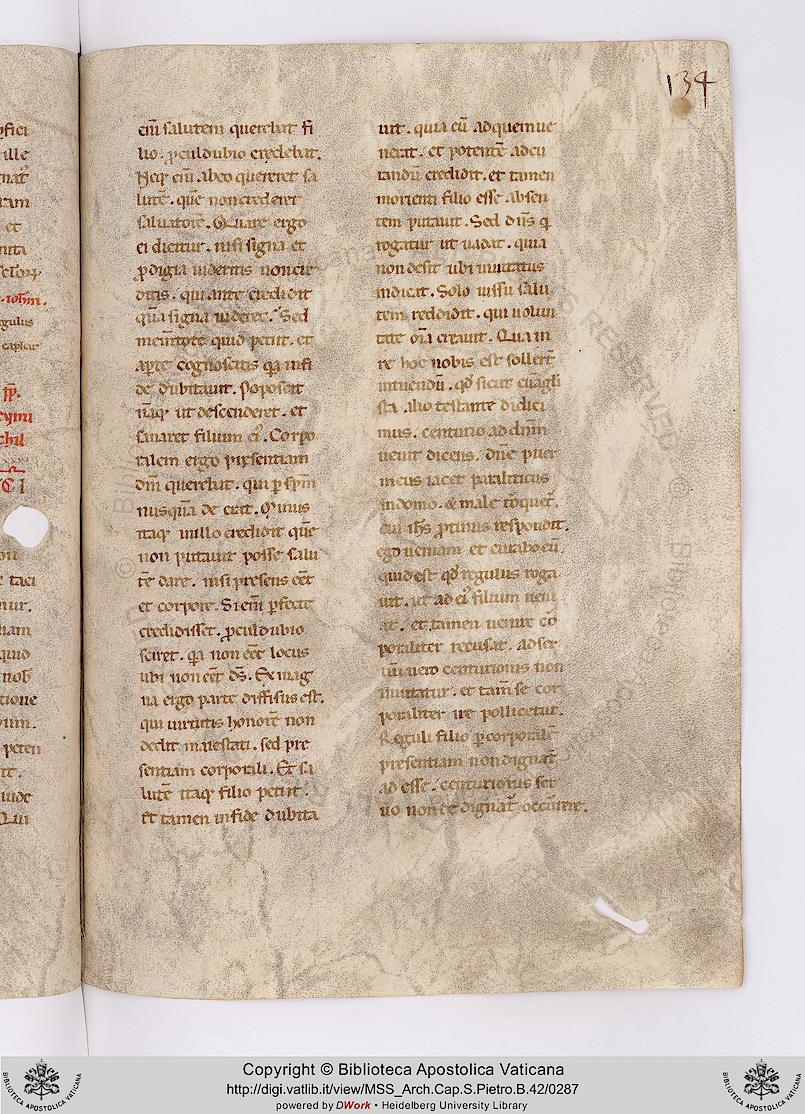 134
eni̅ salutem querebat fi
lio. p̲culdubio credebat.
Neq; eni̅. ab eo quereret sa
lute̅. que̅ non crederet
saluatore̅. Quare ergo
ei dicitur. nisi signa et
p̲digia uideritis non cre
ditis. qui ante credidit
qua̅ signa uideret. Sed
mem̅tote quid petiit. et
ap̲te cognoscitis q̅a in fi
de dubitauit. Poposcit
na̅q; ut descenderet. et
sanaret filium ei᾽. Corpo
ralem ergo presentiam
dn̅i querebat. qui p̲ sp̅m
nusqua̅ de erat. Minus
itaq; in illo credidit que̅
non putauit posse salu
te̅ dare. nisi presens ee̅t
et corpore. Si eni̅ p̲fecte
credidisset. p̲culdubio
sciret. q̅a non ee̅t locus
ubi non ee̅t ds̅. Ex mag
na ergo parte diffisus est.
qui uirtutis honore̅ non
dedit maiestati. sed pre
sentiam corporali. Et sa
lute̅ itaq; filio petiit.
et tamen in fide dubita
uit. quia eu̅ ad quem ue
nerat. et potente̅ ad cu
randu̅ credidit. et tamen
morienti filio esse absen
tem putauit. Sed dn̅s q̅
rogatur ut uadat. quia
non desit ubi inuitatus
indicat. Solo iussu salu
tem reddidit. qui uolun
tate om̅ia creauit. Qua in
re hoc nobis est sollert̅
intuendu̅. qd̅ sicut euagli
sta alio testante didici
mus. centurio ad dn̅m
uenit dicens. dn̅e puer
meus iacet paraliticus
in domo. & male to̅quet᾽.
cui ih̅s p̲tinus respondit.
ego ueniam et curabo eu̅.
quid est qd̅ regulus roga
uit. ut ad ei᾽ filium ueni
at. et tamen uenire co̅
poraliter recusat. ad ser
uu̅ uero centurionis non
inuitatur. et tam̅ se cor
poraliter ire pollicetur.
Reguli filio p̲ corporale̅
presentiam non dignat᾽
ad esse. centurionis ser
uo non de dignat᾽ occurrere.
Copyright © Biblioteca Apostolica Vaticana
http://digi.vatlib.it/view/MSS_Arch.Cap.S.Pietro.B.42/0287
powered by DWork • Heidelberg University Library